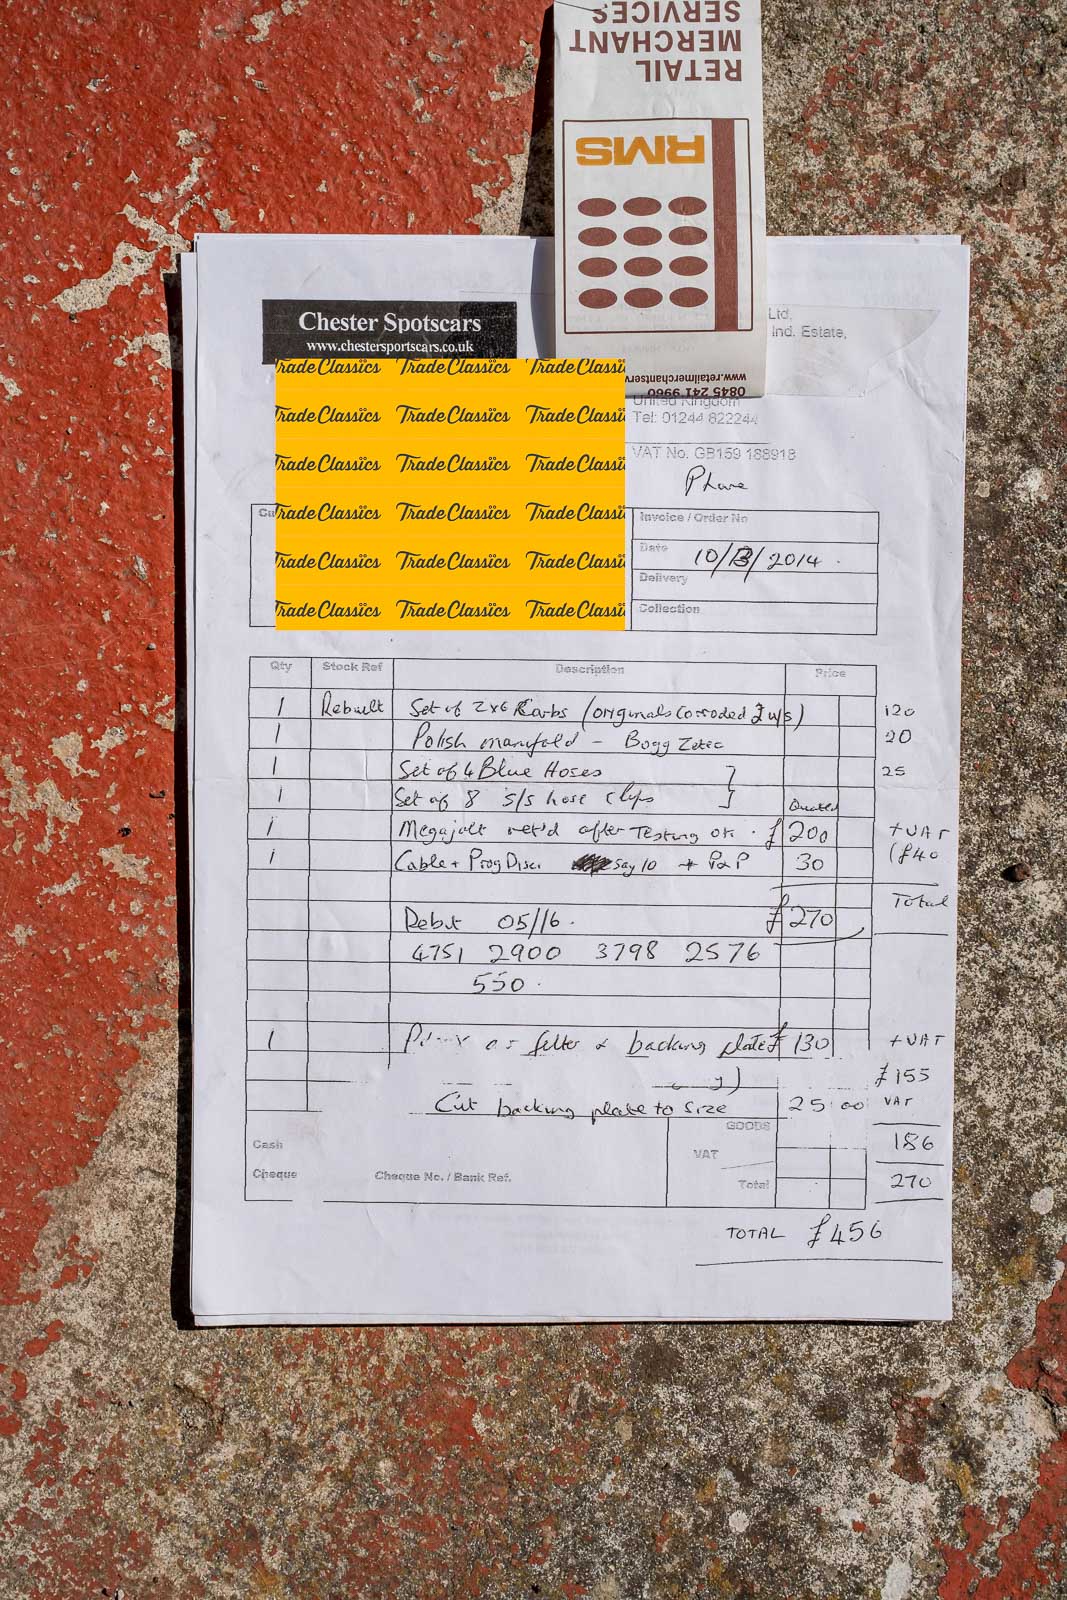 RETAIL
MERCHANT
SERVICES
RMS
www.retailmerchantserv
0845 241 9960
Chester Spotscars
www.chestersportscars.co.uk
Ltd.
Ind. Estate,
United Kingdom
Tel: 01244 822244
VAT No. GB159 188918
Trade Classics Trade Classics Trade Classi
Trade Classics Trade Classics Trade Classi
Trade Classics Trade Classics Trade Classi
Trade Classics Trade Classics Trade Classi
Trade Classics Trade Classics Trade Classi
Trade Classics Trade Classics Trade Classi
Phone
Cu
Invoice / Order No
Date 10/ /2014
Delivery
Collection
Qty Stock Ref Description Price
1 Rebuilt Set of 2x6 Carbs (originals corroded 120
1 Polish manifold - Bogg Zetec 20
1 Set of 4 Blue Hoses 25
1 Set of 8 s/s hose clips Quoted
1 Megajolt ret'd after Testing ok. £ 200 + VAT
1 Cable + Prog Disc. say 10 + P&P 30 (£40
Total
Debit 05/16. £ 270
4751 2900 3798 2576
550.
1 filter & backing plate £ 130 + VAT
£155
Cut backing plate to size 25 00 VAT
GOODS
Cash VAT 186
Cheque Cheque No. / Bank Ref. Total 270
TOTAL £456